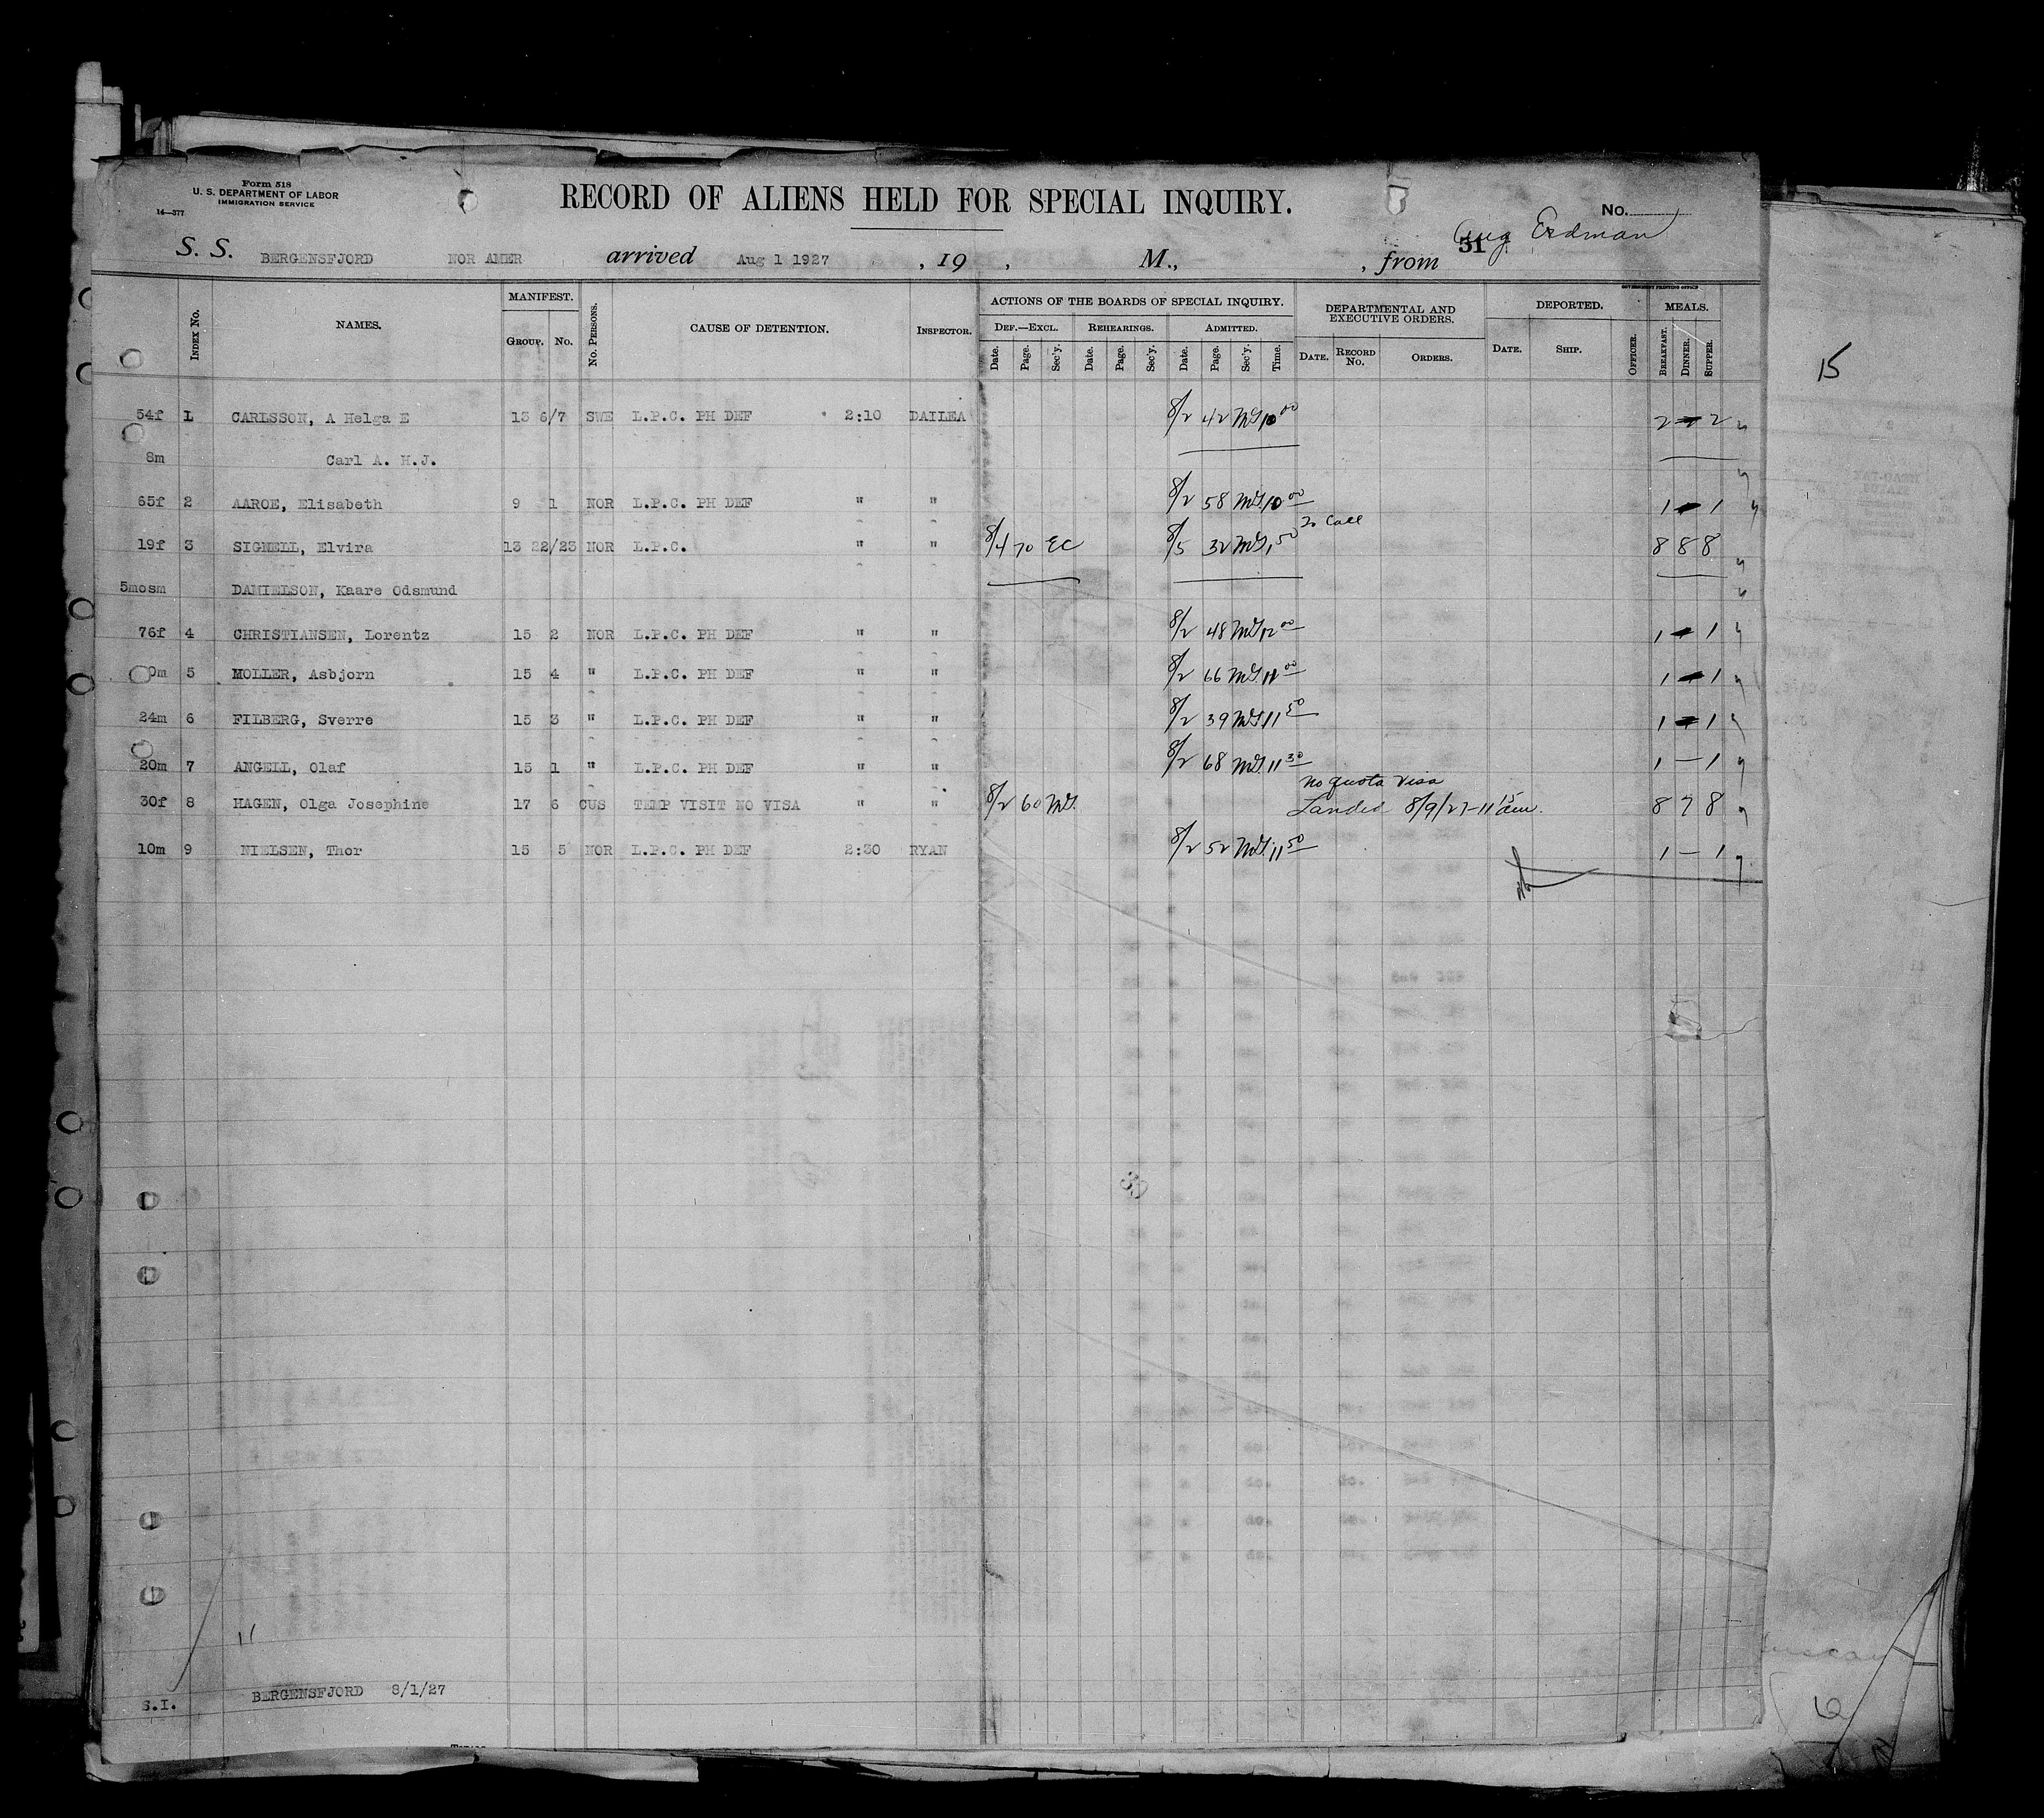 Form 518
U. S. DEPARTMENT OF LABOR
IMMIGRATION SERVICE
14—377
RECORD OF ALIENS HELD FOR SPECIAL INQUIRY.
No.
Aug Erdman
31
S. S. BERGENSFJORD NOR AMER arrived Aug 1 1927 , 19 , M., , from
GOVERNMENT PRINTING OFFICE
INDEX NO. NAMES. MANIFEST. GROUP. NO. NO. PERSONS. CAUSE OF DETENTION. INSPECTOR. ACTIONS OF THE BOARDS OF SPECIAL INQUIRY. DEPARTMENTAL AND EXECUTIVE ORDERS. DEPORTED. OFFICER. MEALS.
DEF.—EXCL. REHEARINGS. ADMITTED.
Date. Page. Sec'y. Date. Page. Sec'y. Date. Page. Sec'y. Time. DATE. RECORD NO. ORDERS. DATE. SHIP. BREAKFAST. DINNER. SUPPER.
15
54f 1 CARLSSON, A Helga E 13 6/7 SWE L.P.C. PH DEF 2:10 DAILEA 8/2 42 MG 10 00 2 - 2
8m Carl A. H.J.
65f 2 AAROE, Elisabeth 9 1 NOR L.P.C. PH DEF " " 8/2 58 MG 10 00 1 - 1
19f 3 SIGNELL, Elvira 13 22/23 NOR L.P.C. " " 8/4 70 EC 8/5 32 MG 1 50 To Call 8 8 8
5mosm DANIELSON, Kaare Odsmund
76f 4 CHRISTIANSEN, Lorentz 15 2 NOR L.P.C. PH DEF " " 8/2 48 MG 12 00 1 - 1
0m 5 MOLLER, Asbjorn 15 4 " L.P.C. PH DEF " " 8/2 66 MG 11 00 1 - 1
24m 6 FILBERG, Sverre 15 3 " L.P.C. PH DEF " " 8/2 39 MG 11 50 1 - 1
20m 7 ANGELL, Olaf 15 1 " L.P.C. PH DEF " " 8/2 68 MG 11 30 1 - 1
No quota visa
30f 8 HAGEN, Olga Josephine 17 6 CUS TEMP VISIT NO VISA " " 8/2 60 MG Landed 8/9/27-11 15 am. 8 7 8
10m 9 NIELSEN, Thor 15 5 NOR L.P.C. PH DEF 2:30 RYAN 8/2 52 MG 11 50 1 - 1
33
11
S.I. BERGENSFJORD 8/1/27